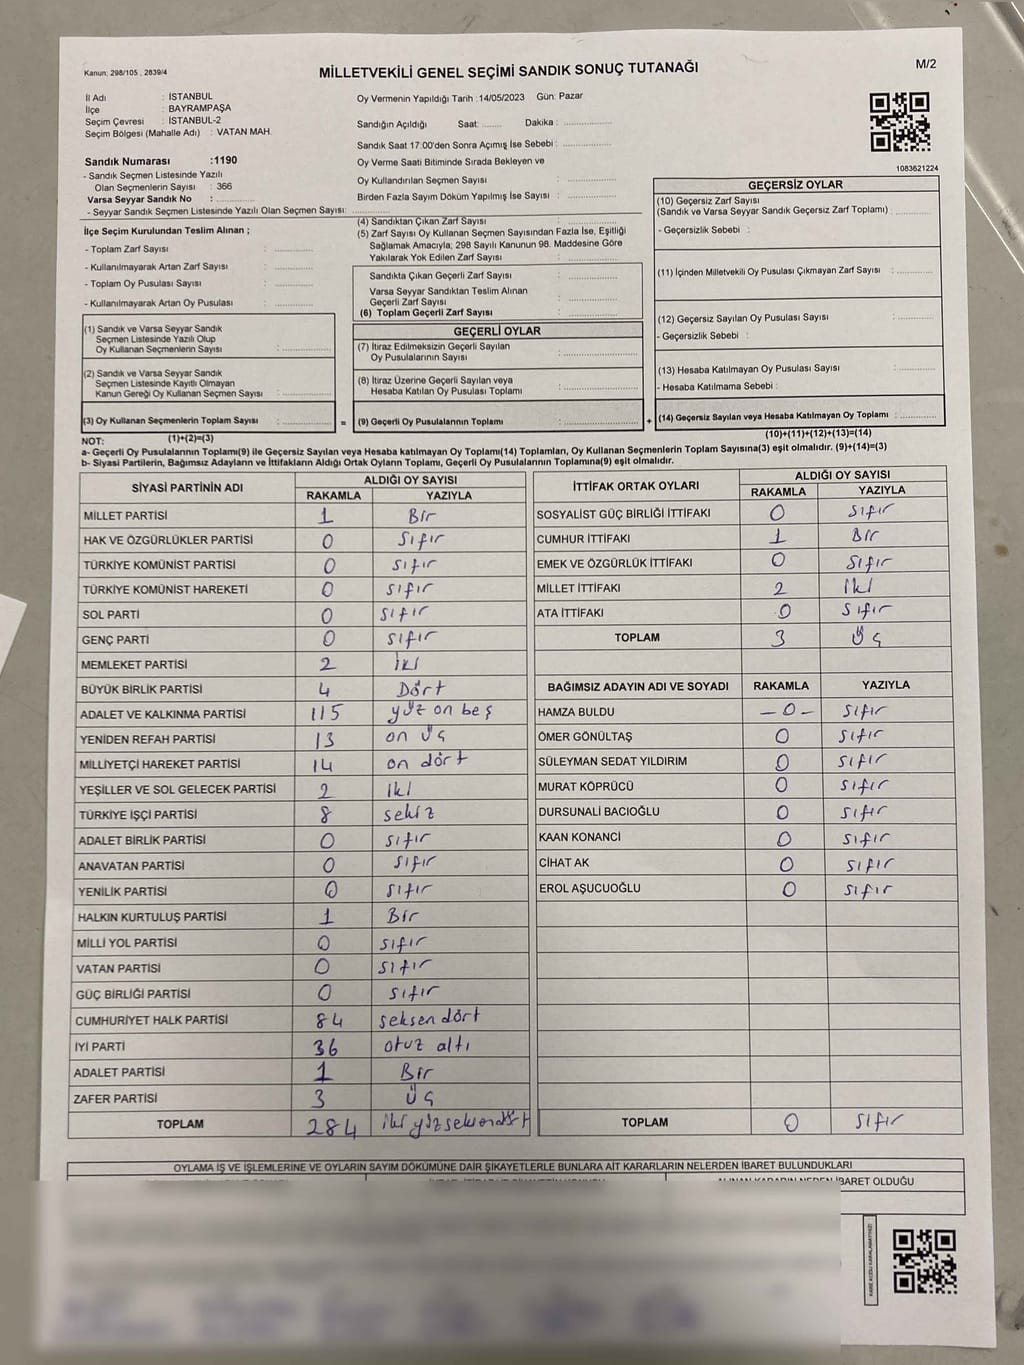 Kanun: 298/105 , 2839/4
MİLLETVEKİLİ GENEL SEÇİMİ SANDIK SONUÇ TUTANAĞI
M/2
İl Adı : İSTANBUL
İlçe : BAYRAMPAŞA
Seçim Çevresi : İSTANBUL-2
Seçim Bölgesi (Mahalle Adı) : VATAN MAH.
Sandık Numarası :1190
- Sandık Seçmen Listesinde Yazılı
Olan Seçmenlerin Sayısı : 366
Varsa Seyyar Sandık No :
- Seyyar Sandık Seçmen Listesinde Yazılı Olan Seçmen Sayısı:
İlçe Seçim Kurulundan Teslim Alınan ;
- Toplam Zarf Sayısı :
- Kullanılmayarak Artan Zarf Sayısı :
- Toplam Oy Pusulası Sayısı :
- Kullanılmayarak Artan Oy Pusulası :
(1) Sandık ve Varsa Seyyar Sandık
Seçmen Listesinde Yazılı Olup
Oy Kullanan Seçmenlerin Sayısı :
(2) Sandık ve Varsa Seyyar Sandık
Seçmen Listesinde Kayıtlı Olmayan
Kanun Gereği Oy Kullanan Seçmen Sayısı :
(3) Oy Kullanan Seçmenlerin Toplam Sayısı :
Oy Vermenin Yapıldığı Tarih :14/05/2023 Gün: Pazar
Sandığın Açıldığı Saat: Dakika :
Sandık Saat 17:00'den Sonra Açımış İse Sebebi :
Oy Verme Saati Bitiminde Sırada Bekleyen ve
Oy Kullandırılan Seçmen Sayısı :
Birden Fazla Sayım Döküm Yapılmış İse Sayısı :
(4) Sandıktan Çıkan Zarf Sayısı :
(5) Zarf Sayısı Oy Kullanan Seçmen Sayısından Fazla İse, Eşitliği
Sağlamak Amacıyla; 298 Sayılı Kanunun 98. Maddesine Göre
Yakılarak Yok Edilen Zarf Sayısı :
Sandıkta Çıkan Geçerli Zarf Sayısı :
Varsa Seyyar Sandıktan Teslim Alınan
Geçerli Zarf Sayısı :
(6) Toplam Geçerli Zarf Sayısı :
GEÇERLİ OYLAR
(7) İtiraz Edilmeksizin Geçerli Sayılan
Oy Pusulalarının Sayısı :
(8) İtiraz Üzerine Geçerli Sayılan veya
Hesaba Katılan Oy Pusulası Toplamı :
= (9) Geçerli Oy Pusulalarının Toplamı : +
1083621224
GEÇERSİZ OYLAR
(10) Geçersiz Zarf Sayısı
(Sandık ve Varsa Seyyar Sandık Geçersiz Zarf Toplamı) :
- Geçersizlik Sebebi :
(11) İçinden Milletvekili Oy Pusulası Çıkmayan Zarf Sayısı :
(12) Geçersiz Sayılan Oy Pusulası Sayısı :
- Geçersizlik Sebebi :
(13) Hesaba Katılmayan Oy Pusulası Sayısı :
- Hesaba Katılmama Sebebi :
(14) Geçersiz Sayılan veya Hesaba Katılmayan Oy Toplamı :
NOT: (1)+(2)=(3)
(10)+(11)+(12)+(13)=(14)
a- Geçerli Oy Pusulalarının Toplamı(9) ile Geçersiz Sayılan veya Hesaba katılmayan Oy Toplamı(14) Toplamları, Oy Kullanan Seçmenlerin Toplam Sayısına(3) eşit olmalıdır. (9)+(14)=(3)
b- Siyasi Partilerin, Bağımsız Adayların ve İttifakların Aldığı Ortak Oyların Toplamı, Geçerli Oy Pusulalarının Toplamına(9) eşit olmalıdır.
SİYASİ PARTİNİN ADI ALDIĞI OY SAYISI
RAKAMLA YAZIYLA
MİLLET PARTİSİ 1 Bir
HAK VE ÖZGÜRLÜKLER PARTİSİ 0 Sıfır
TÜRKİYE KOMÜNİST PARTİSİ 0 sıfır
TÜRKİYE KOMÜNİST HAREKETİ 0 sıfır
SOL PARTİ 0 sıfır
GENÇ PARTİ 0 sıfır
MEMLEKET PARTİSİ 2 iki
BÜYÜK BİRLİK PARTİSİ 4 Dört
ADALET VE KALKINMA PARTİSİ 115 yüz on beş
YENİDEN REFAH PARTİSİ 13 on üç
MİLLİYETÇİ HAREKET PARTİSİ 14 on dört
YEŞİLLER VE SOL GELECEK PARTİSİ 2 iki
TÜRKİYE İŞÇİ PARTİSİ 8 sekiz
ADALET BİRLİK PARTİSİ 0 sıfır
ANAVATAN PARTİSİ 0 sıfır
YENİLİK PARTİSİ 0 sıfır
HALKIN KURTULUŞ PARTİSİ 1 Bir
MİLLİ YOL PARTİSİ 0 sıfır
VATAN PARTİSİ 0 sıfır
GÜÇ BİRLİĞİ PARTİSİ 0 sıfır
CUMHURİYET HALK PARTİSİ 84 seksen dört
İYİ PARTİ 36 otuz altı
ADALET PARTİSİ 1 Bir
ZAFER PARTİSİ 3 Üç
TOPLAM 284 iki yüz seksen dört
İTTİFAK ORTAK OYLARI ALDIĞI OY SAYISI
RAKAMLA YAZIYLA
SOSYALİST GÜÇ BİRLİĞİ İTTİFAKI 0 sıfır
CUMHUR İTTİFAKI 1 Bir
EMEK VE ÖZGÜRLÜK İTTİFAKI 0 sıfır
MİLLET İTTİFAKI 2 iki
ATA İTTİFAKI 0 sıfır
TOPLAM 3 Üç
BAĞIMSIZ ADAYIN ADI VE SOYADI RAKAMLA YAZIYLA
HAMZA BULDU -0- sıfır
ÖMER GÖNÜLTAŞ 0 sıfır
SÜLEYMAN SEDAT YILDIRIM 0 sıfır
MURAT KÖPRÜCÜ 0 sıfır
DURSUNALİ BACIOĞLU 0 sıfır
KAAN KONANCİ 0 sıfır
CİHAT AK 0 sıfır
EROL AŞUCUOĞLU 0 sıfır
TOPLAM 0 sıfır
OYLAMA İŞ VE İŞLEMLERİNE VE OYLARIN SAYIM DÖKÜMÜNE DAİR ŞİKAYETLERLE BUNLARA AİT KARARLARIN NELERDEN İBARET BULUNDUKLARI
İBARET OLDUĞU